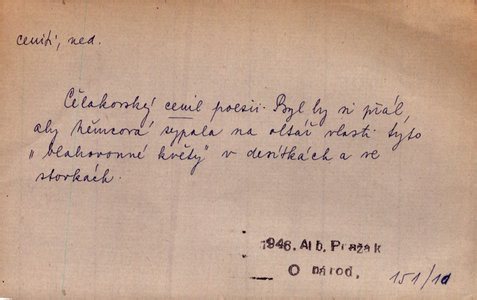 ceniti, ned.
Čelakovský cenil poesii. Byl by si přál,
aby Němcová sypala na oltář vlasti tyto
„blahovonné květy" v desítkách a ve
stovkách.
1946. Alb. Pražak
O národ.
151/10